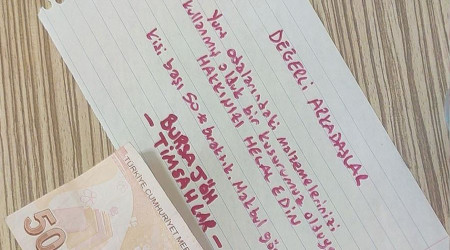 DEĞERLİ ARKADAŞLAR
Yurt odalarındaki malzemelerinizi
kullanmış olduk bir kusurumuz olduysa
HAKKINIZI HELAL EDİN
Kişi başı 50 ₺ bıraktık. Makbul
BURSA JÖH
- TİMSAHLAR -
TÜRKİYE CUMHURİYET MER
50